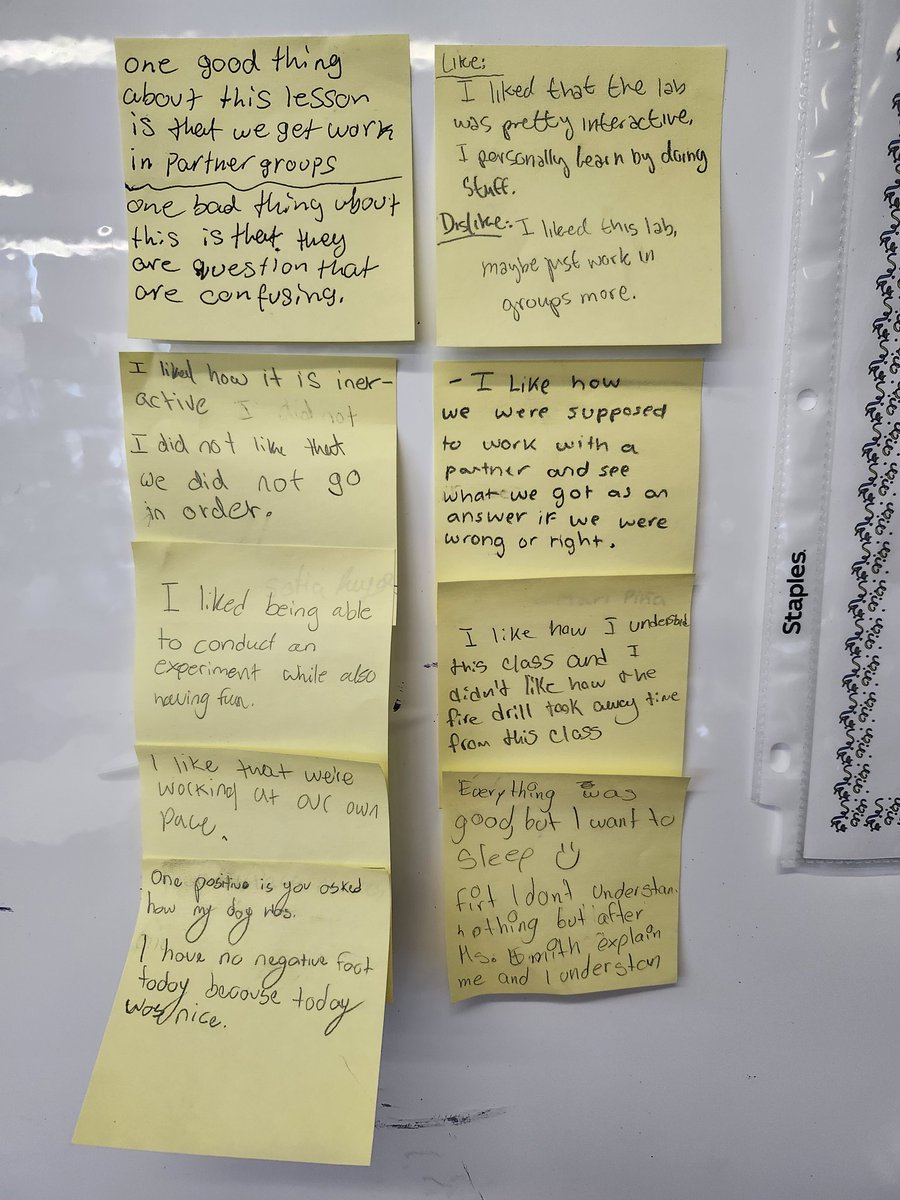 one good thing
about this lesson
is that we get work
in partner groups
one bad thing about
this is that they
are question that
are confusing.
I liked how it is iner-
active I did not
I did not like that
we did not go
in order.
I liked being able
to conduct an
experiment while also
having fun.
I like that we're
working at our own
pace.
One positive is you asked
how my day was.
I have no negative fact
today because today
was nice.
Like:
I liked that the lab
was pretty interactive,
I personally learn by doing
stuff.
Dislike: I liked this lab,
maybe just work in
groups more.
- I Like how
we were supposed
to work with a
partner and see
what we got as an
answer if we were
wrong or right.
I like how I understood
this class and I
didn't like how the
fire drill took away time
from this class
Everything was
good, but I want to
sleep
firt I dont understan
nothing but after
Ms. Smith explain
me and I understan
Staples.